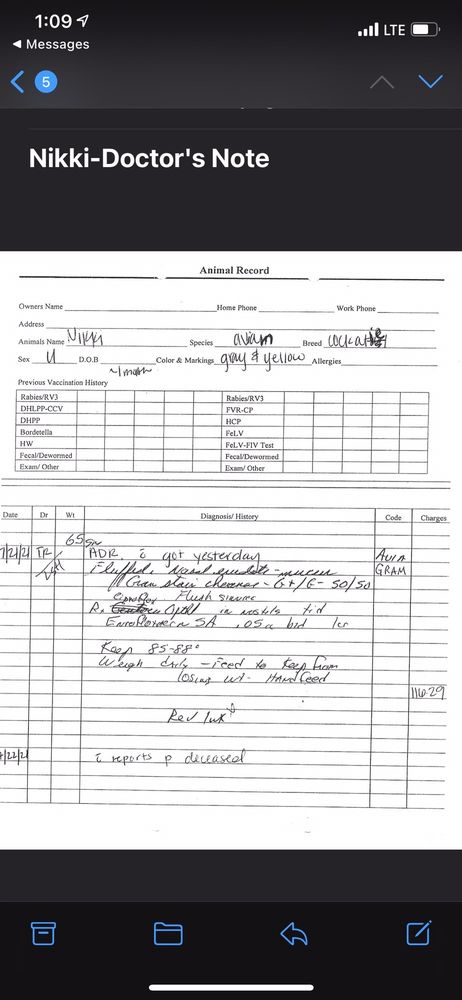 1:09
LTE
Messages
5
Nikki-Doctor's Note
Animal Record
Owners Name Home Phone Work Phone
Address
Animals Name Nikki Species avian Breed
Sex U D.O.B ~1 month Color & Markings gray & yellow Allergies
Previous Vaccination History
Rabies/RV3 Rabies/RV3
DHLPP-CCV FVR-CP
DHPP HCP
Bordetella FeLV
HW FeLV-FIV Test
Fecal/Dewormed Fecal/Dewormed
Exam/ Other Exam/ Other
Date Dr Wt Diagnosis/ History Code Charges
65gm
7/21/21 TR ADR. c̄ got yesterday
Fluffed. Nasal - GRAM
Gram stain - G+/G- 50/50
Flush
in nostrils tid
.05cc bid
Keep 85-88°
Weigh daily - Feed to keep from
losing wt. HAND feed
116.29
/22/21 reports p deceased